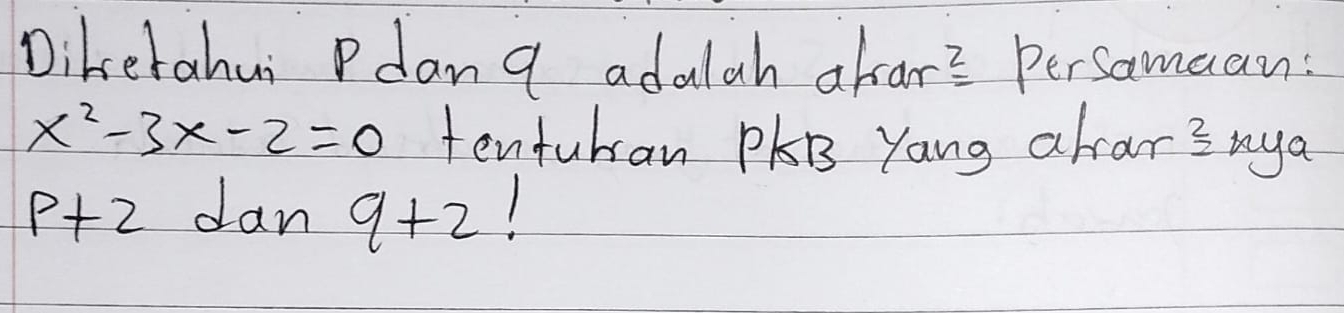 Diketahui P dan q adalah akar² persamaan:
x²-3x-2=0 tentukan PKB yang akar²nya
P+2 dan q+2!